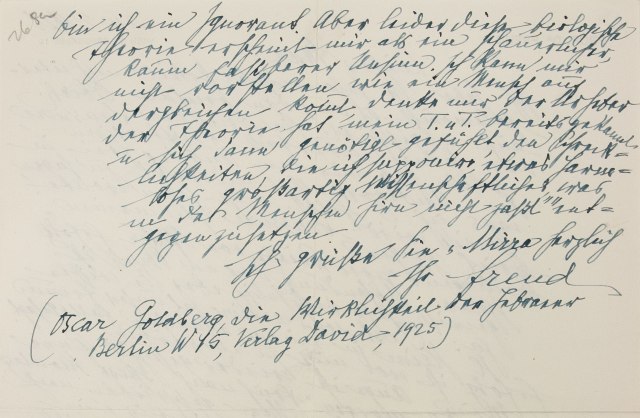 bin ich ein Ignorant. Aber leider diese biologische
Theorie erscheint mir als ein schauerlicher,
kaum fassbarer Unsinn. Ich kann mir
nicht vorstellen, wie ein Mensch auf
dergleichen kommt denke mir der Urheber
der Theorie hat mein T. u. T. bereits gekannt
u sich dann genötigt gefühlt den Schreck-
lichkeiten, die ich supponire etwas harm-
loses großartig Wissenschaftliches was
in des Menschen Hirn nicht paßt "" ent-
gegenzusetzen
Ich grüße Sie u Mirra herzlich
Ihr Freud
(Oscar Goldberg, die Wirklichkeit der Hebraeer
Berlin W 15, Verlag David, 1925)